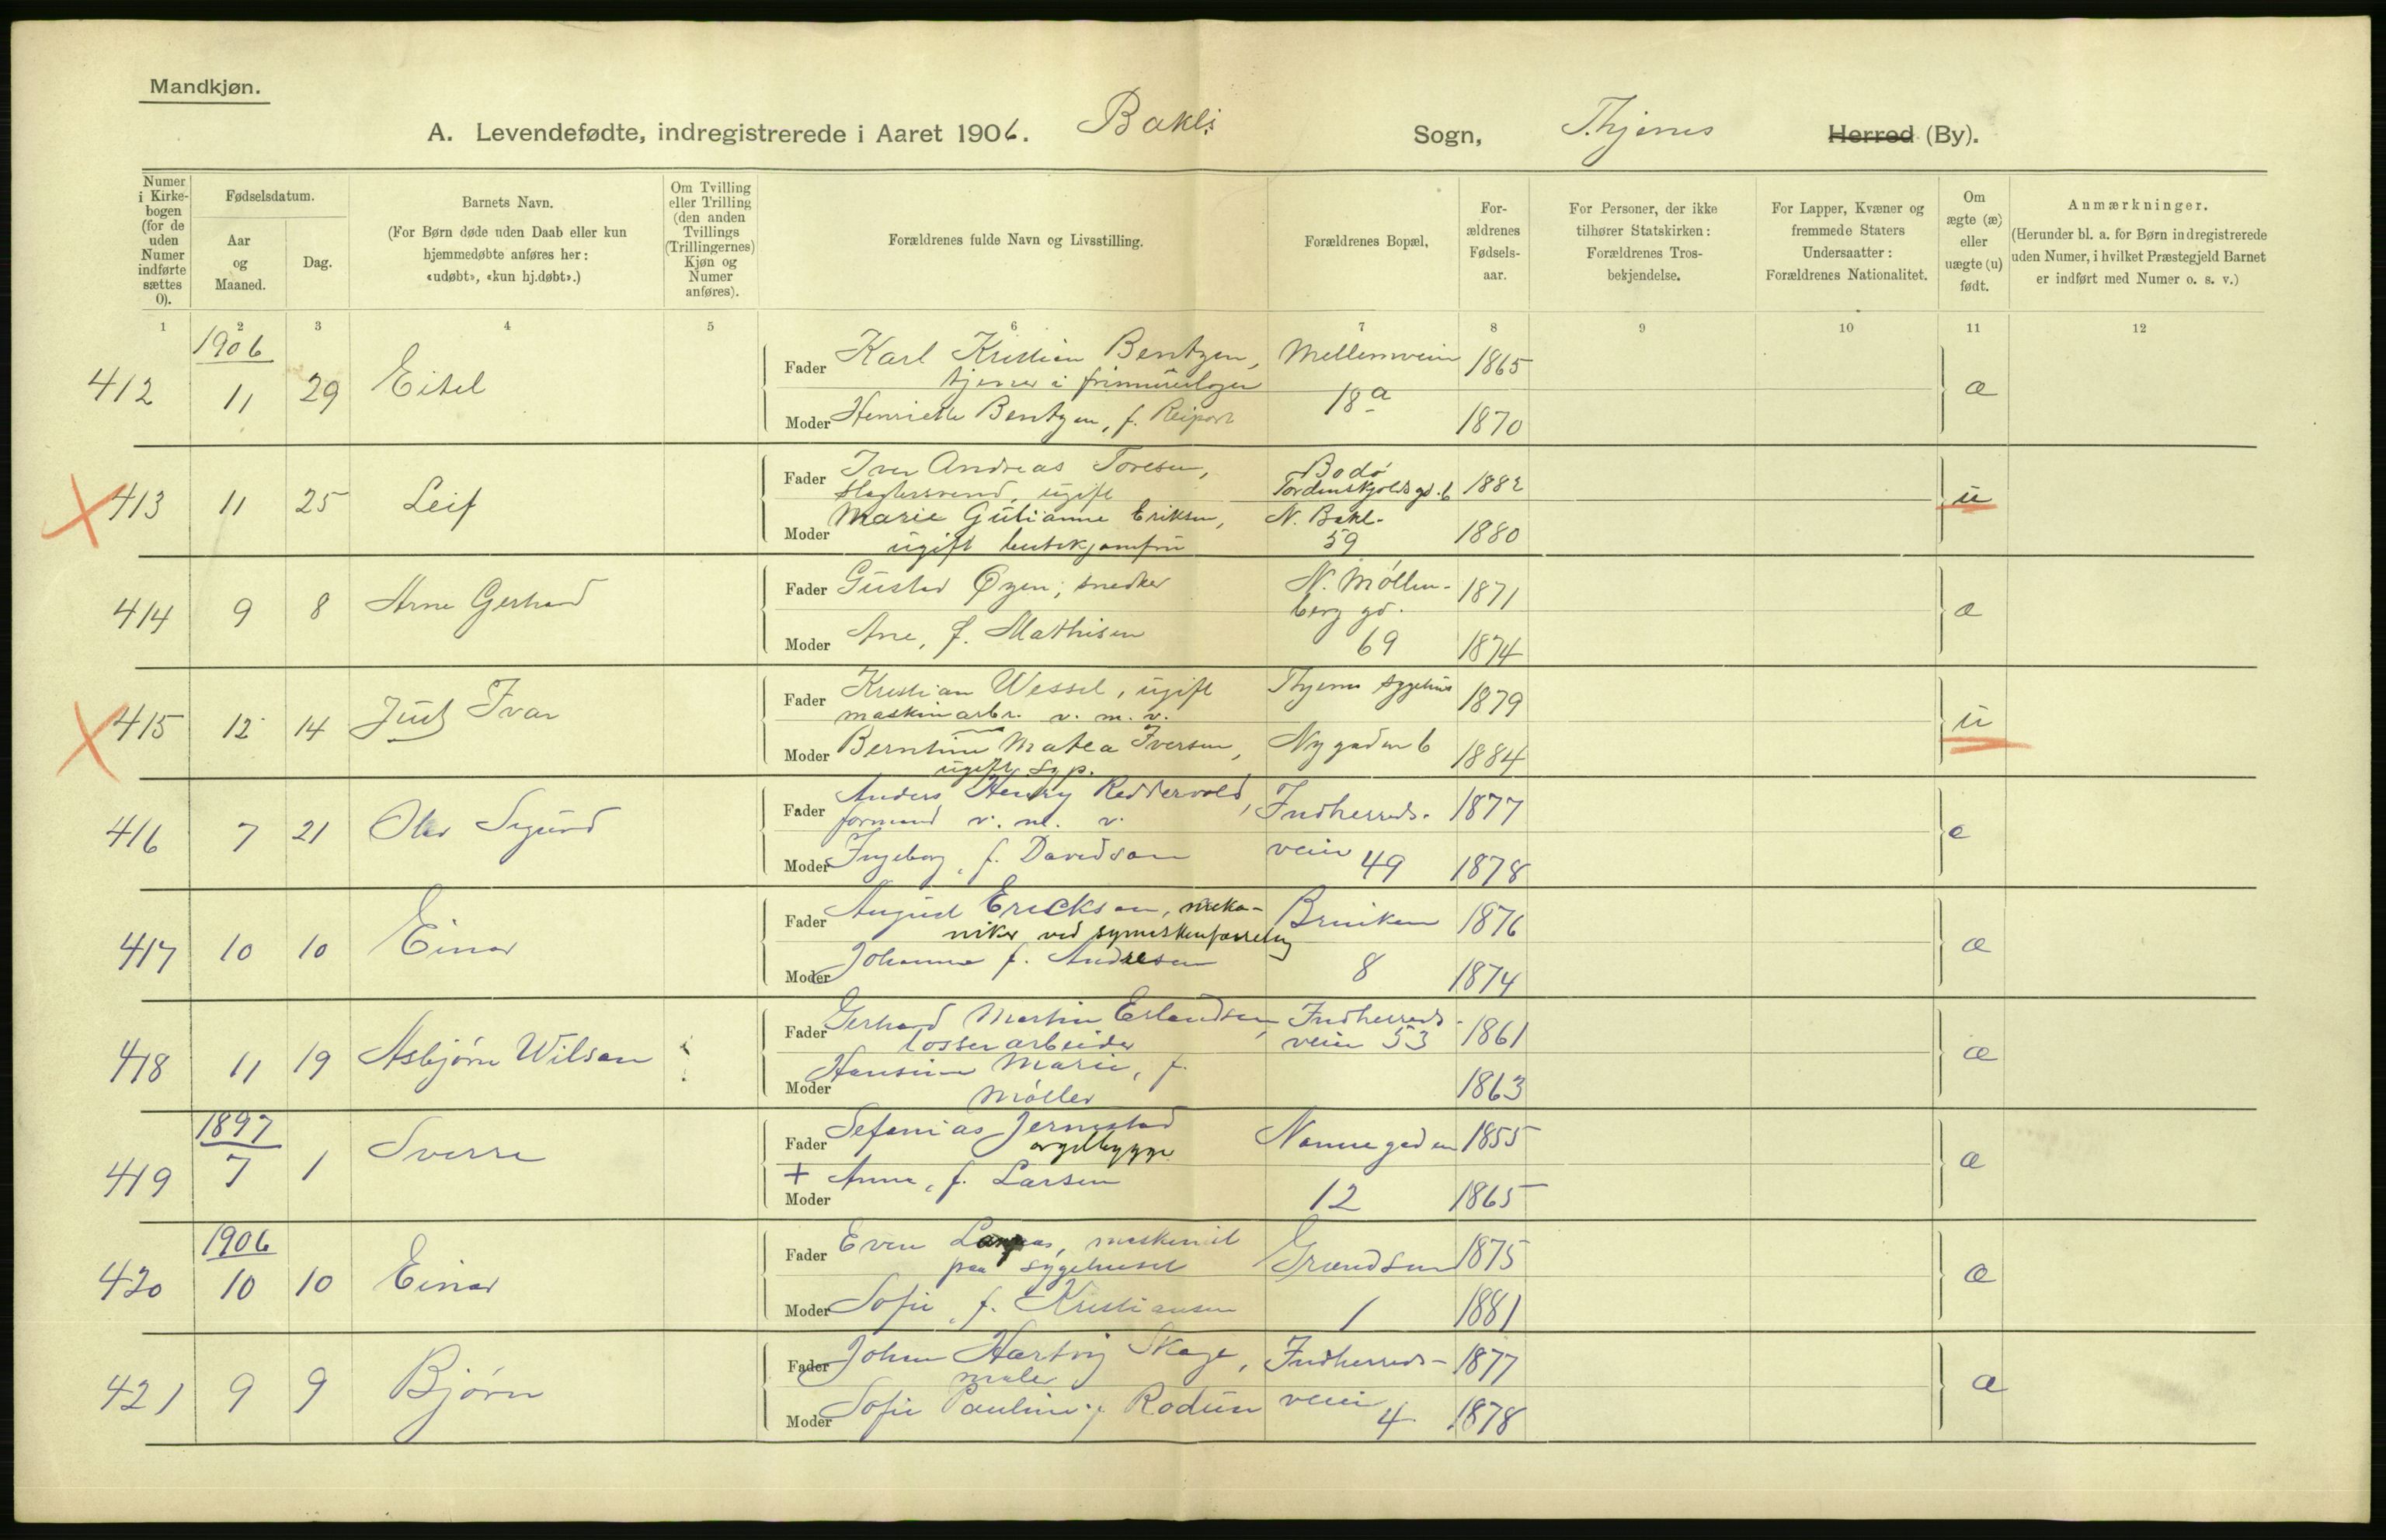 Mandkjøn.
A. Levendefødte, indregistrerede i Aaret 1906. Bakl: Sogn, Thjems Herred (By).
Numer i Kirkebogen (for de uden Numer indførte sættes 0).
Fødselsdatum.
Aar og Maaned.
Dag.
Barnets Navn.
(For Børn døde uden Daab eller kun hjemmedøbte anføres her: «udøbt», «kun hj.døbt».)
Om Tvilling eller Trilling (den anden Tvillings (Trillingernes) Kjøn og Numer anføres).
Forældrenes fulde Navn og Livsstilling.
Forældrenes Bopæl,
Forældrenes Fødselsaar.
For Personer, der ikke tilhører Statskirken: Forældrenes Trosbekjendelse.
For Lapper, Kvæner og fremmede Staters Undersaatter: Forældrenes Nationalitet.
Om ægte (æ) eller uægte (u) født.
Anmærkninger.
(Herunder bl. a. for Børn indregistrerede uden Numer, i hvilket Præstegjeld Barnet er indført med Numer o. s. v.)
1 2 3 4 5 6 7 8 9 10 11 12
1906
412 11 29 Eitel
Fader Karl Kristian Bentzen, Mellemveien 1865 æ
tjener i frimurerlogen 18a
Moder Henriette Bentzen, f. 1870
413 11 25 Leif
Fader Iver Andreas Toresen, Bodø 1882 u
slagtersvend, ugift Tordenskjolds gd. 6
Moder Marie Gulianne Eriksen, N. Bakl. 1880
ugift butikjomfru 59
414 9 8 Arne Gerhard
Fader Gustav Øzen, snedker N. Møllenberg gd. 1871 æ
Moder Ane, f. Mathisen 69 1874
415 12 14 Just Ivar
Fader Kristian Wessel, ugift Thjems sygehus 1879 u
maskinarbr. v. m. v.
Moder Berntine Matea Iversen, Nygaden 6 1884
ugift syp.
416 7 21 Olav Sigurd
Fader Anders Henry Reddervold, Indherreds- 1877 æ
formand v. m. v.
Moder Ingeborg, f. Davidsen veien 49 1878
417 10 10 Einar
Fader August Erickson, meka- Bruiken 1876 æ
niker ved symaskinforretng
Moder Johanna f. Andresen 8 1874
418 11 19 Asbjørn Wilson
Fader Gerhard Martin Erlandsen, Indherreds- 1861 æ
losserarbeider veien 53
Moder Hansine Marie, f. 1863
Møller
1897
419 7 1 Sverre
Fader Sefanias Jernstad Nonnegaden 1855 æ
orgelbygger
+ Moder Anna, f. Larsen 12 1865
1906
420 10 10 Einar
Fader Even, maskinist 1875 æ
paa sygehuset
Moder Sofie, f. Kristiansen 1 1881
421 9 9 Bjørn
Fader Johan Hartvig Skage, Indherreds- 1877 æ
maler
Moder Sofie Pauline f. Rodun veien 4 1878